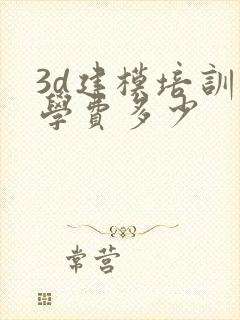 3d建模培訓
學費多少
常营